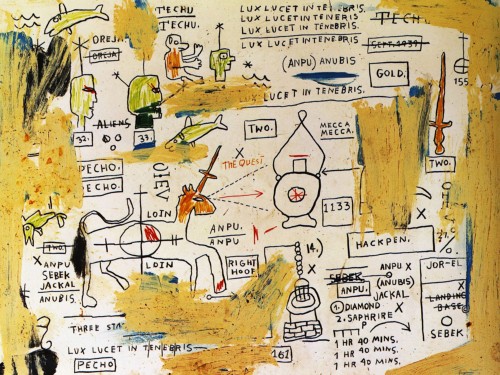 T'ECHU
T'ECHU.
LUX LUCET IN TENEBRIS.
LUX LUCET IN TENERIS
LUX LUCET IN TENEBRIS.
LUX LUCET IN TENEBRIS
(ANPU) ANUBIS
LUCET IN TENEBRIS.
TECH
SEPT. 1939
GOLD.
155
OREJA
OREJA
ALIENS
32.
33.
TWO.
MECCA
MECCA.
THE QUEST
X
TWO.
PECHO.
ECHO.
LOIN
LOIN
ANPU.
ANPU
RIGHT
HOOF
1133
HACKPEN.
TWO.
X
ANPU
SEBEK
JACKAL
ANUBIS.
14.
X
SEBEK
ANPU.
ANPU X
(ANUBIS)
JACKAL
1. DIAMOND
2. SAPHRIRE
1 HR 40 MINS.
1 HR 40 MINS.
1 HR 40 MINS.
JOR-EL
X
LANDING
BASE
SEBEK
THREE STA
LUX LUCET IN TENEBRIS
PECHO
161